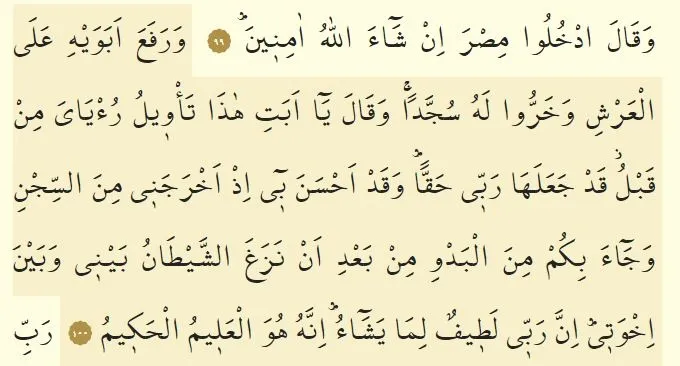 وَقَالَ ادْخُلُوا مِصْرَ اِنْ شَٓاءَ اللّٰهُ اٰمِن۪ينَۜ ﴿٩٩﴾ وَرَفَعَ اَبَوَيْهِ عَلَى
الْعَرْشِ وَخَرُّوا لَهُ سُجَّداًۚ وَقَالَ يَٓا اَبَتِ هٰذَا تَأْو۪يلُ رُءْيَايَ مِنْ
قَبْلُۘ قَدْ جَعَلَهَا رَبّ۪ي حَقاًّۜ وَقَدْ اَحْسَنَ ب۪ٓي اِذْ اَخْرَجَن۪ي مِنَ السِّجْنِ
وَجَٓاءَ بِكُمْ مِنَ الْبَدْوِ مِنْ بَعْدِ اَنْ نَزَغَ الشَّيْطَانُ بَيْن۪ي وَبَيْنَ
اِخْوَت۪يۜ اِنَّ رَبّ۪ي لَط۪يفٌ لِمَا يَشَٓاءُۜ اِنَّهُ هُوَ الْعَل۪يمُ الْحَك۪يمُ ﴿١٠٠﴾ رَبِّ